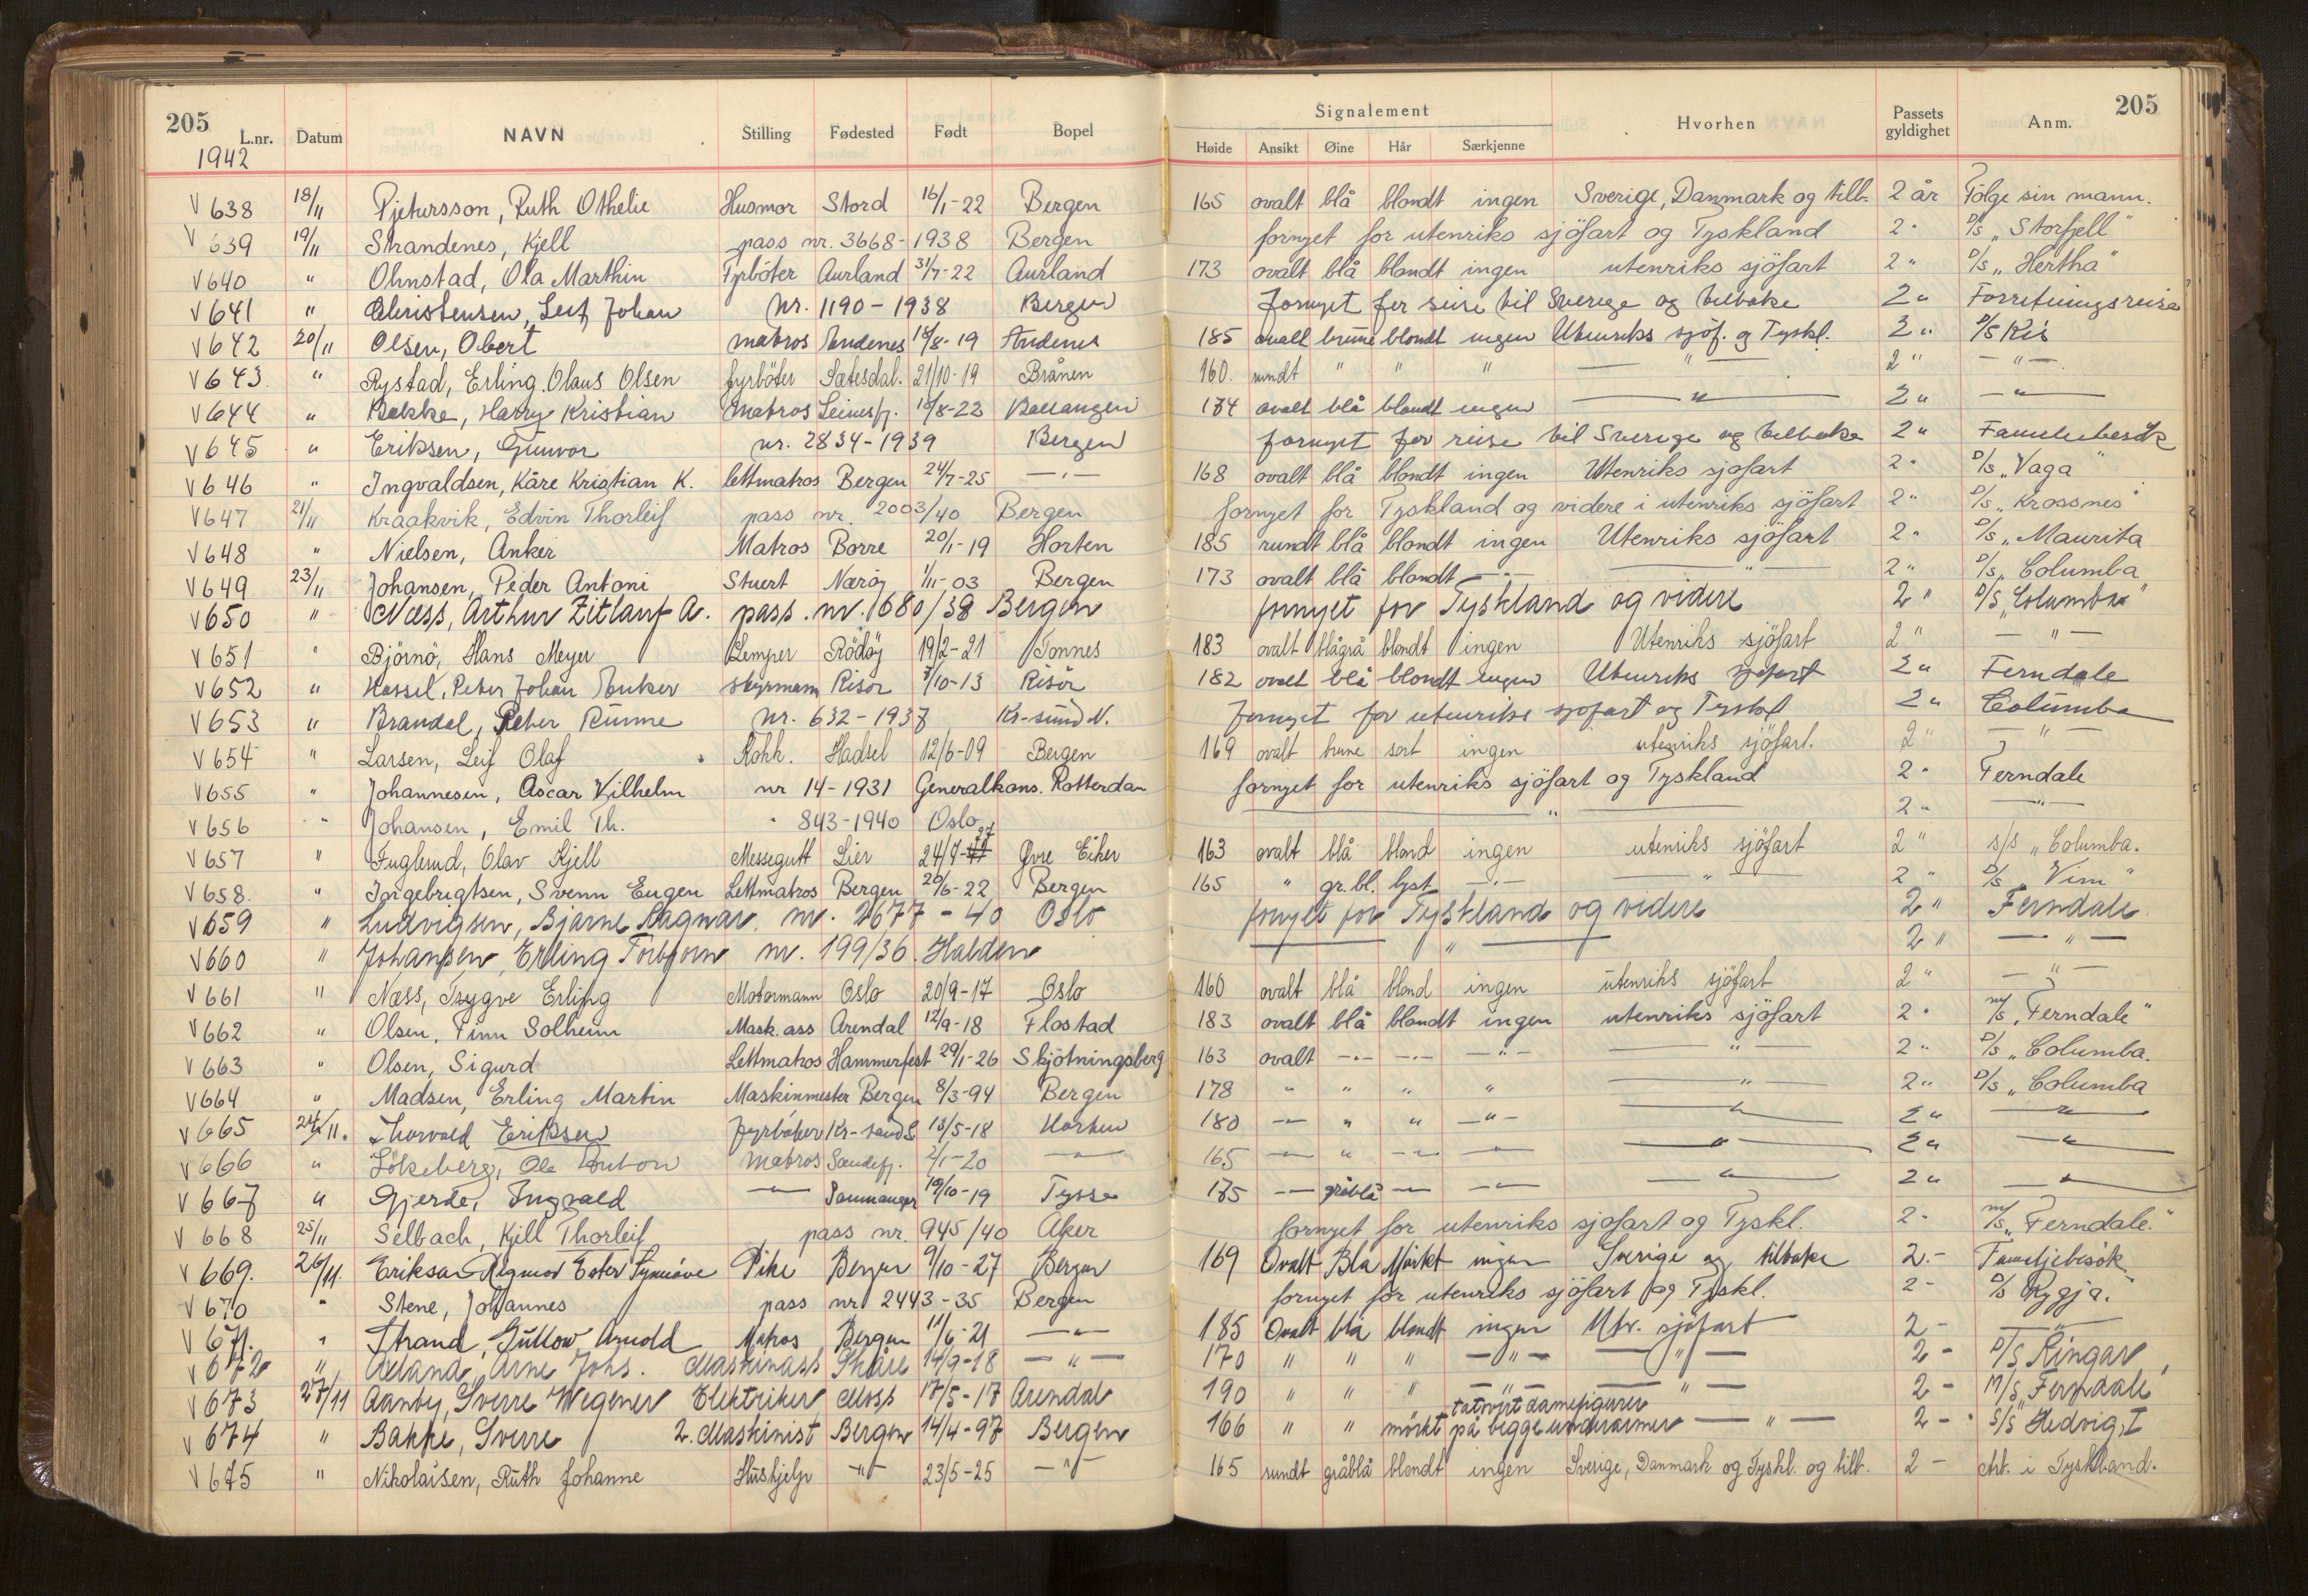 205 205
Signalement
L.nr. Datum NAVN Stilling Fødested Født Bopel Høide Ansikt Øine Hår Særkjenne Hvorhen Passets gyldighet Anm.
1942
V 638 18/11 Pjetursson, Ruth Othelie Husmor Stord 16/1-22 Bergen 165 ovalt blå blondt ingen Sverige, Danmark og tilb. 2 år Følge sin mann.
V 639 19/11 Strandenes, Kjell pass nr. 3668-1938 Bergen fornyet for utenriks sjöfart og Tyskland 2 " D/s „Storfjell"
V 640 " Ohnstad, Ola Marthin Fyrböter Aurland 31/7-22 Aurland 173 ovalt blå blondt ingen utenriks sjöfart 2 " D/s „Hertha"
V 641 " Christensen, Leif Johan Nr. 1190-1938 Bergen Fornyet for reise til Sverige og tilbake 2 " Forretningsreise
V 642 20/11 Olsen, Obert matros Andenes 18/8-19 Andenes 185 ovalt brune blondt ingen Utenriks sjöf. og Tyskl. 2 " D/S Ris
V 643. " Rystad, Erling Olaus Olsen fyrböter Sætesdal. 21/10-19 Brånen 160. rundt " " " — " — 2 " — " —
V 644 " Bakke, Harry Kristian Matros Leinesfj. 18/8-22 Ballangen 174 ovalt blå blondt ingen — " — 2 " — " —
V 645 " Eriksen, Gunvor nr. 2834-1939 Bergen fornyet for reise til Sverige og tilbake 2 " Familiebesök
V 646 " Ingvaldsen, Kåre Kristian K. lettmatros Bergen 24/7-25 — " — 168 ovalt blå blondt ingen Utenriks sjöfart 2 " D/s „Vaga"
V 647 21/11 Kraakvik, Edvin Thorleif pass nr. 2003/40 Bergen fornyet for Tyskland og videre i utenriks sjöfart 2 " D/s „Krossnes"
V 648 " Nielsen, Anker Matros Borre 20/1-19 Horten 185 rundt blå blondt ingen Utenriks sjöfart 2 " D/s „Maurita
V 649 23/11 Johansen, Peder Antoni Stuert Nærøy 1/11-03 Bergen 173 ovalt blå blondt — " — — " — 2 " D/s „Columba
V 650 " Næss, Arthur Zitlauf A. pass. nr. 1680/38 Bergen fornyet for Tyskland og videre 2 " D/S „Columba"
V 651 " Björnö, Hans Meyer Lemper Rödöy 19/2-21 Tonnes 183 ovalt blågrå blondt ingen Utenriks sjöfart 2 " — " —
V 652 " Hassel, Peter Johan Anker styrmann Risör 7/10-13 Risör 182 ovalt blå blondt ingen Utenriks sjöfart 2 " Ferndale
V 653 " Brandal, Peter Rünne Nr. 632-1937 Kr-sund N. Fornyet for utenriks sjöfart og Tyskl 2 " Columba
V 654 " Larsen, Leif Olaf Kokk. Hadsel 12/6-09 Bergen 169 ovalt brune sort ingen utenriks sjöfart. 2 " — " —
V 655 " Johannesen, Ascar Vilhelm nr 14-1931 Generalkons. Rotterdam fornyet for utenriks sjöfart og Tyskland 2 " Ferndale
V 656 " Johansen, Emil Th. " 843-1940 Oslo — " — 2 " — " —
V 657 " Fuglerud, Olav Kjell Messegutt Lier 24/7-27 Øvre Eiker 163 ovalt blå blond ingen utenriks sjöfart 2 " s/s „Columba.
V 658. " Ingebrigtsen, Svenn Eugen Lettmatros Bergen 20/6-22 Bergen 165 " gr.bl. lyst — " — — " — 2 " D/s „Vim"
V 659 " Ludvigsen, Bjarne Ragnar. nr. 2677-40 Oslo fornyet for Tyskland og videre 2 " Ferndale
V 660 " Johansen, Erling Torbjorn nr. 199/36. Halden — " — 2 " — " —
V 661 " Næss, Trygve Erling Motormann Oslo 20/9-17 Oslo 160 ovalt blå blond ingen utenriks sjöfart 2 " — " —
V 662 " Olsen, Finn Solheim Mask. ass Arendal 12/9-18 Flostad 183 ovalt blå blondt ingen utenriks sjöfart 2 " m/s „Ferndale"
V 663 " Olsen, Sigurd Lettmatros Hammerfest 29/1-26 Skjötningsberg 163 ovalt — " — — " — — " — — " — 2 " D/s „Columba.
V 664 " Madsen, Erling Martin Maskinmester Bergen 8/3-94 Bergen 178 " " " " — " — 2 " D/s „Columba
V 665 24/11. Thorvald Eriksen Fyrböter Kr-sand S. 13/5-18 Horten 180 — " — " " — " — — " — 2 " — " —
V 666 " Lökeberg, Ole Anton Matros Sandefj. 2/1-20 — " — 165 — " — " — " — — " — — " — 2 " — " —
V 667 " Gjerde, Ingvald — " — Samnanger 19/10-19 Tysse 175 — " — gråblå — " — — " — — " — 2 " — " —
V 668 25/11 Selbach, Kjell Thorleif pass nr. 945/40 Aker fornyet for utenriks sjöfart og Tyskl. 2 - m/s „Ferndale."
V 669. 26/11. Eriksen Rigmor Ester Synnöve Pike Bergen 9/10-27 Bergen 169 Ovalt Blå Mörkt ingen Sverige og tilbake 2.- Familjebesök
V 670 " Stene, Johannes pass nr 2443-35 Bergen fornyet for utenriks sjöfart og Tyskl. 2 - D/s Rygja."
V 671. " Strand, Güttow Arnold Matros Bergen 11/6-21 — " — 185 Ovalt blå blondt ingen Utr. sjöfart 2 - — " —
V 672 " Arne Johs. Maskinass Skåre 14/9-18 — " — 170 " " " — " — — " — 2 - D/S Ringar
V 673 27/11 Aanby, Sverre Wegener Elektriker Moss 17/5-17 Arendal 190 " " " — " — — " — 2 - M/S „Ferndale"
tatovert damefigurer
V 674 " Bakke, Sverre 2. Maskinist Bergen 14/4-97 Bergen 166 " " mörkt på begge underarmer — " — 2 - S/S Hedvig I
V 675 " Nikolaisen, Ruth Johanne Hushjelp — " — 23/5-25 — " — 165 rundt gråblå blondt ingen Sverige, Danmark og Tyskl. og tilb. 2 - Arb. i Tyskland.